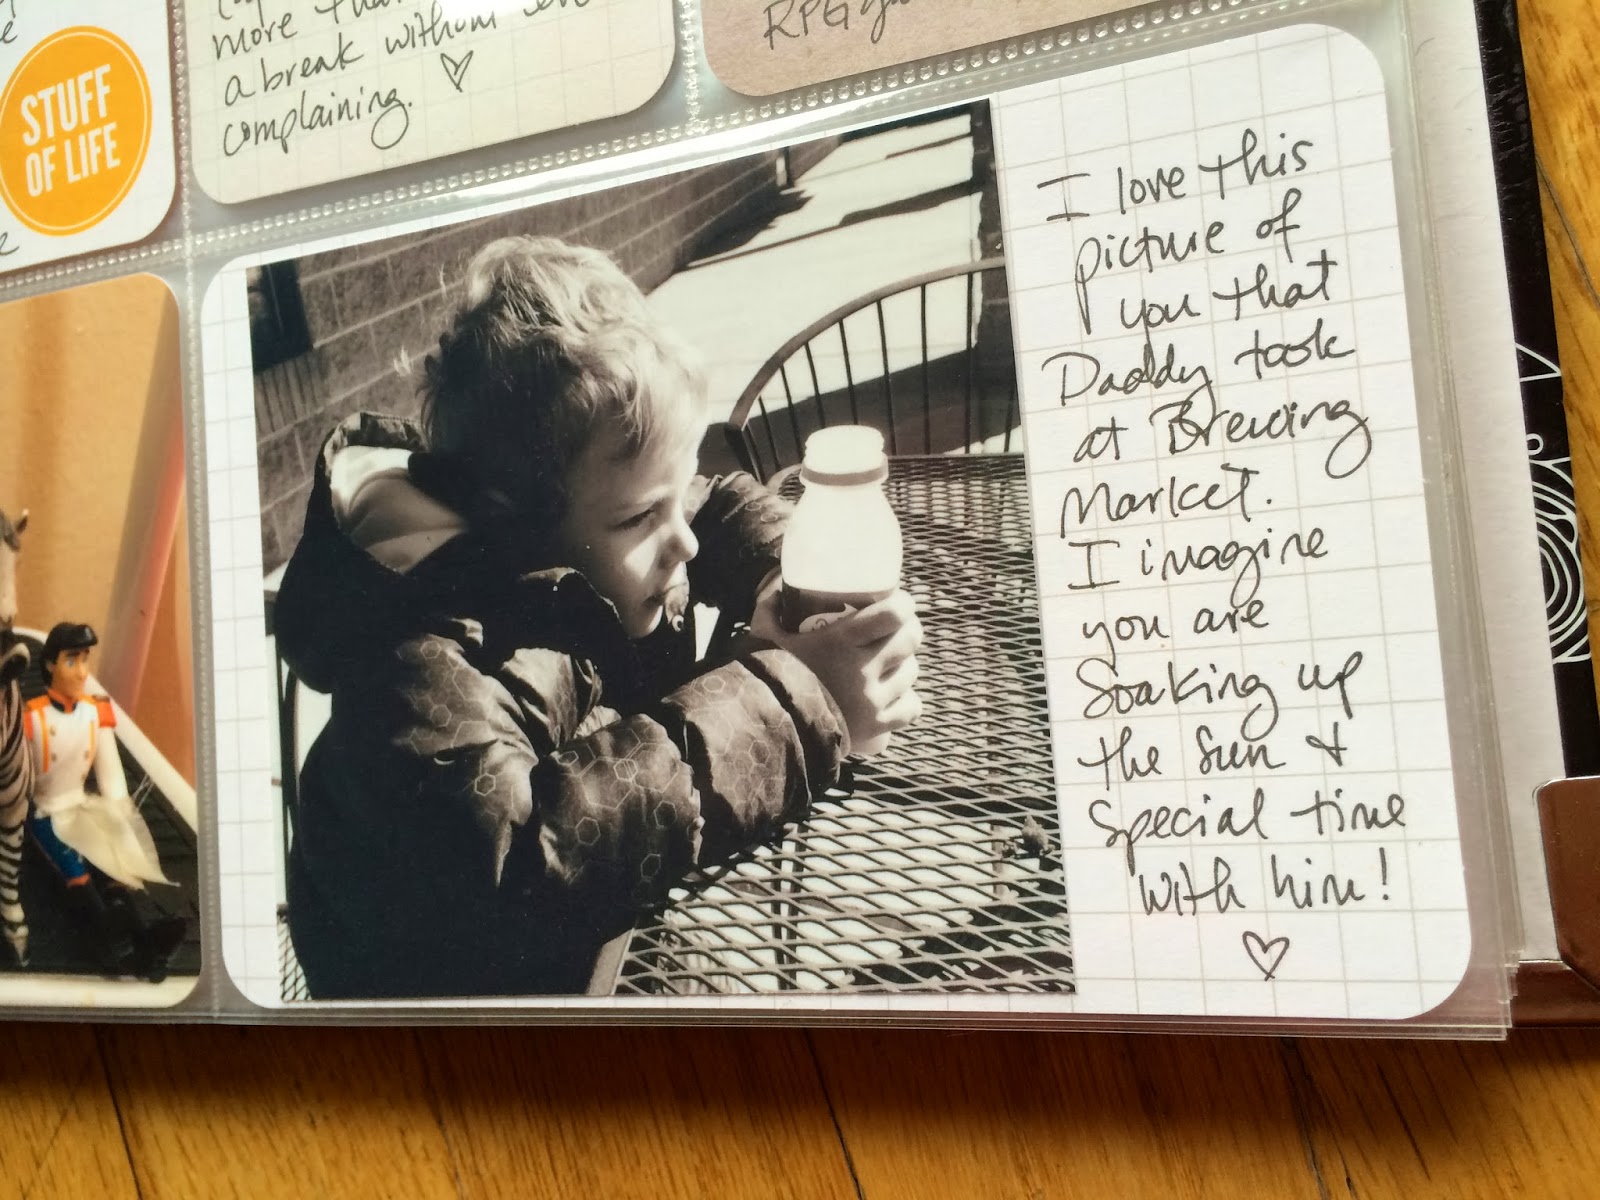 STUFF
OF LIFE
more than
a break without
complaining. ♡
RPG
I love this
picture of
you that
Daddy took
at Brewing
Market.
I imagine
you are
Soaking up
the Sun &
special time
with him!
♡